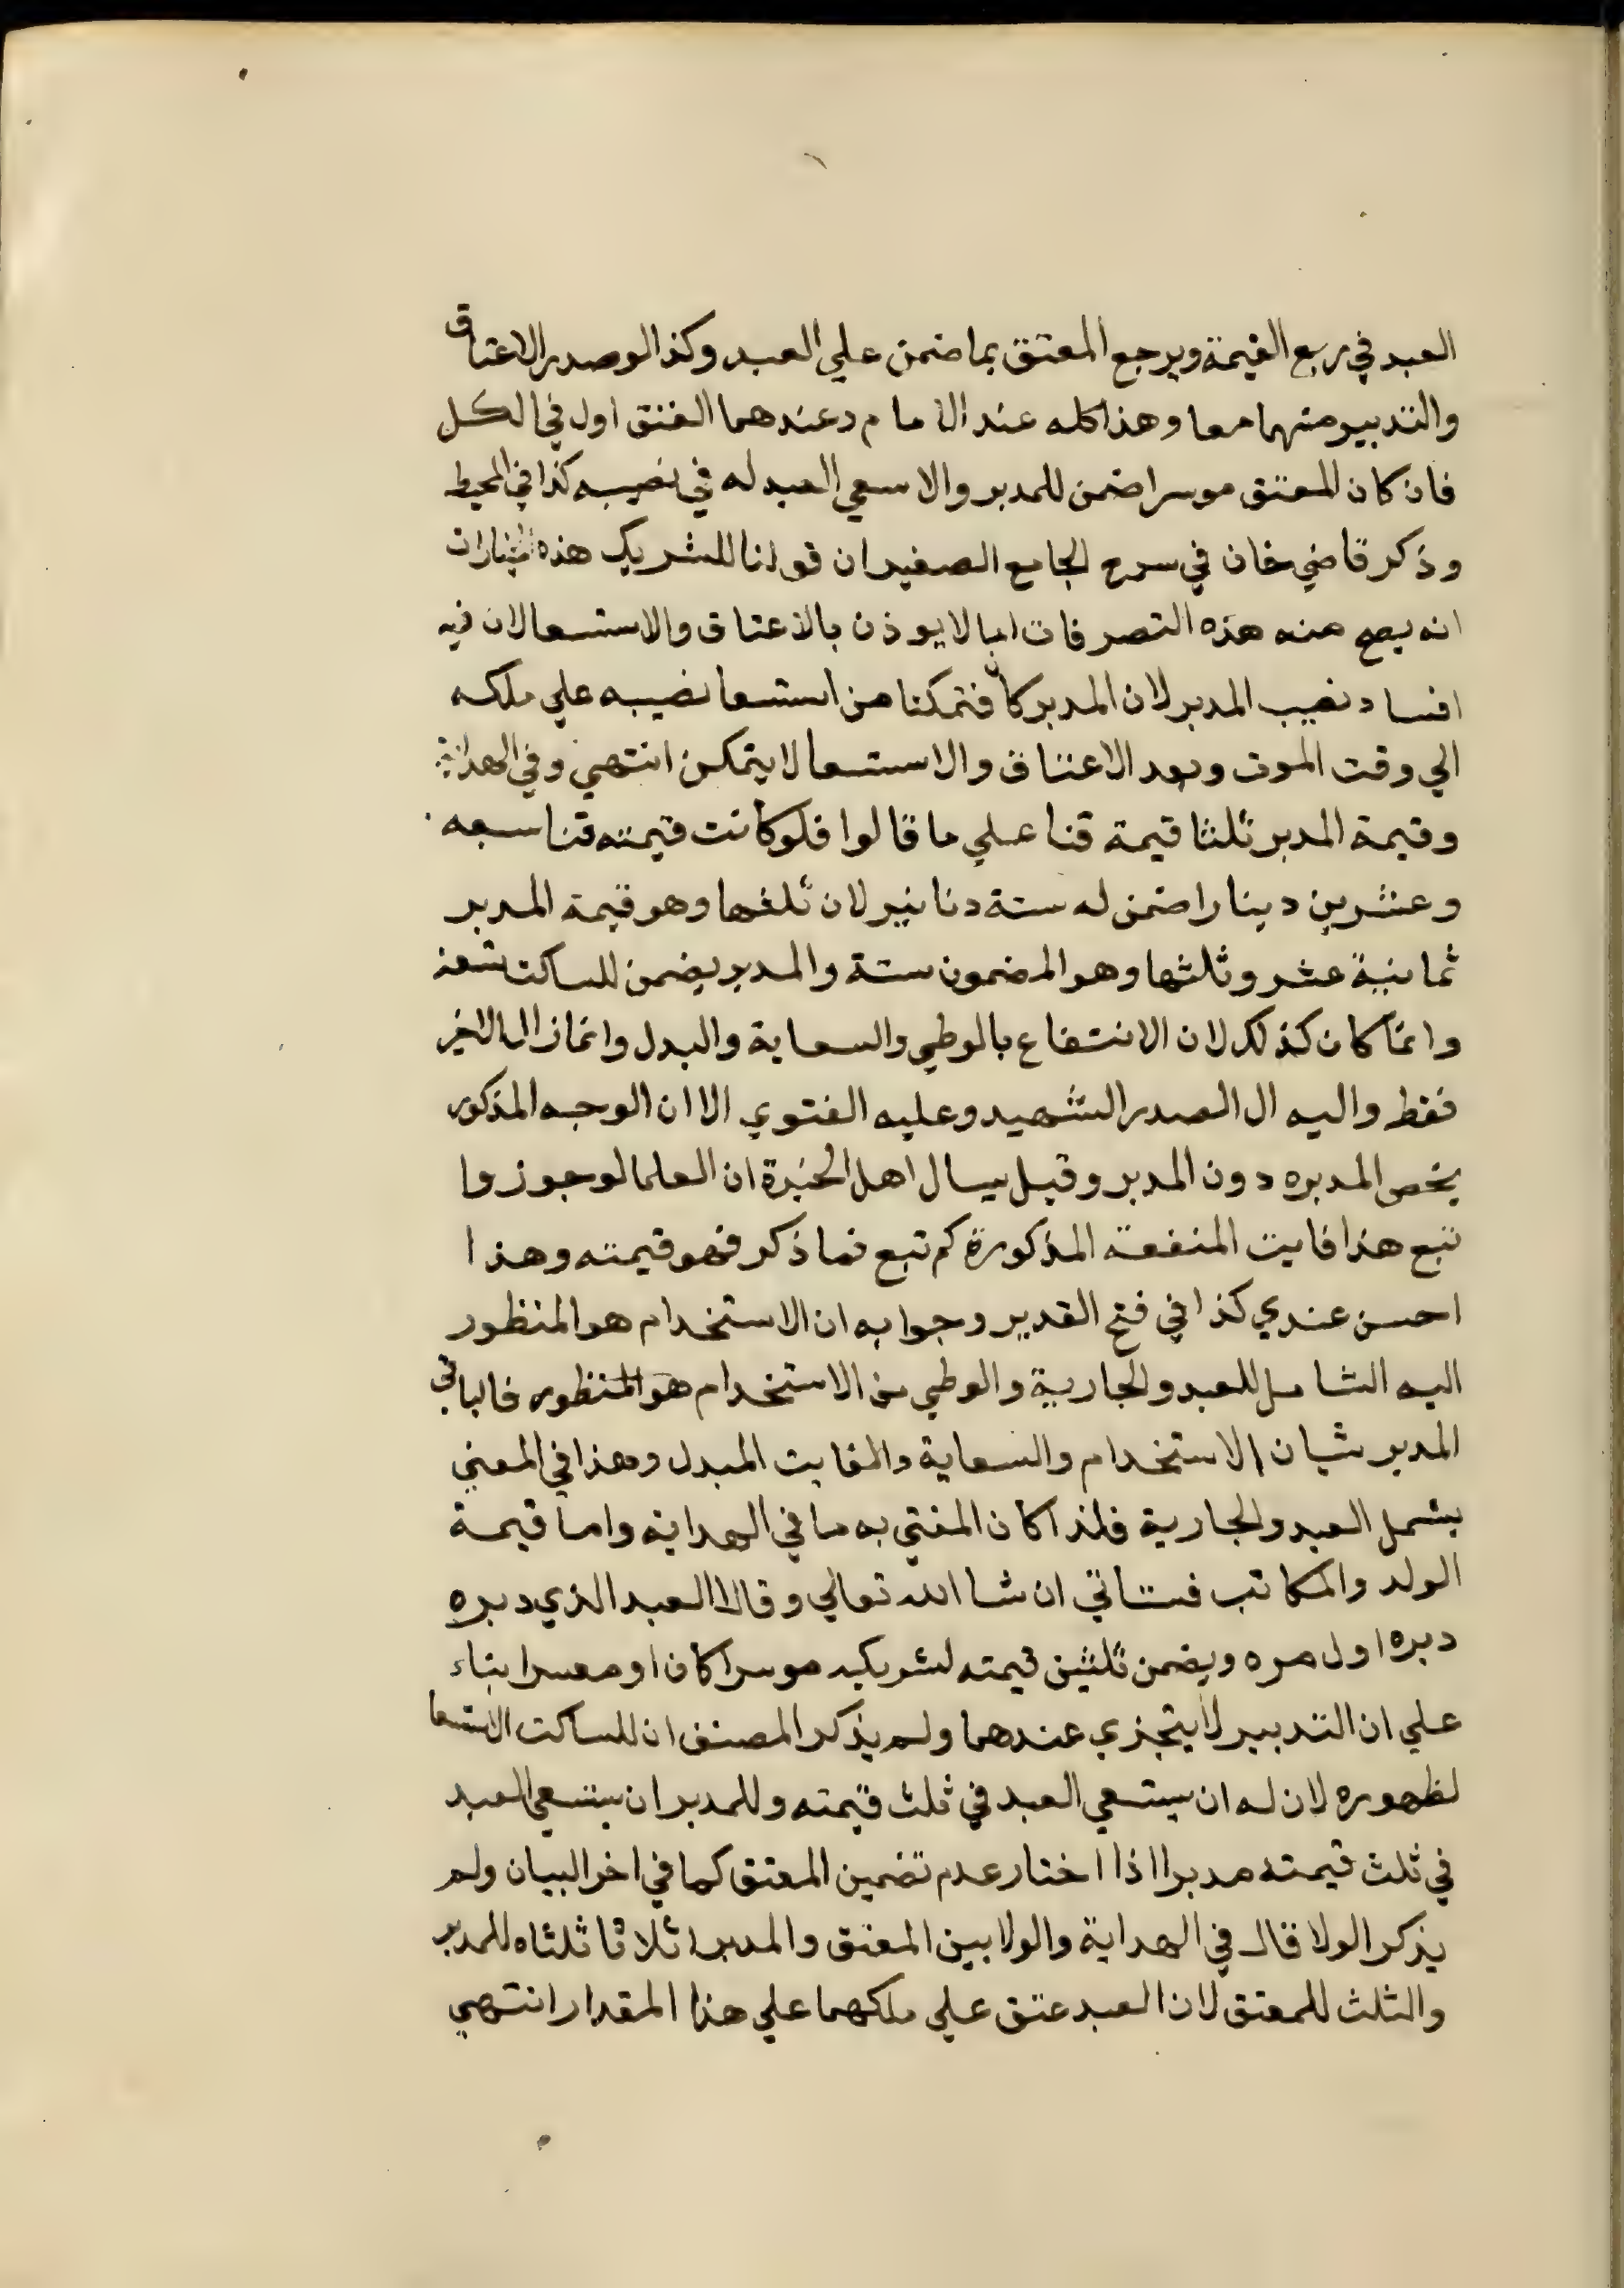 العبد في ربع القيمة ويرجع المعتق بما ضمن علي العبد وكذا لو صدر الاعتاق
والتدبير منهما معا وهذا كله عند الامام وعندهما العتق اولي في الكل
فان كان المعتق موسرا ضمن للمدبر والا سعي العبد له في نصيبه كذا في المحيط
وذكر قاضي خان في سرح الجامع الصغير ان قولنا للشريك هذه الخيارات
انه يصح منه هذه التصرفات اما لا يوذن بالاعتاق والاستسعا لان فيه
افساد نصيب المدبر لان المدبر كان فتمكنا من استسعا نصيبه علي ملكه
الي وقت الموت وبعد الاعتاق والاستسعا لا يتمكن انتهي وفي الهداية
وقيمة المدبر ثلثا قيمة قنا علي ما قالوا فلو كانت قيمته قنا سبعه
وعشرين دينارا ضمن له ستة دنانير لان ثلثها وهو قيمة المدبر
ثمانية عشر وثلثها وهو المضمون ستة والمدبر يضمن للساكت تسعة
وانما كان كذلك لان الانتفاع بالوطي والسعاية والبدل وانما زال الاخير
فقط واليه ال الصدر الشهيد وعليه الفتوي الا ان الوجه المذكور
يخص المدبره دون المدبر وقيل يسال اهل الخبرة ان العلما لو جوزوا
تبع هذا فايت المنفعة المذكورة كم تبع فما ذكر فهو قيمته وهذا
احسن عندي كذا في فتح القدير وجوابه ان الاستخدام هو المنظور
اليه الشامل للعبد والجارية والوطي من الاستخدام هو المنظور فالباقي
المدبر شيان الاستخدام والسعاية والفايت المبدل وهذا في المعني
يشمل العبد والجارية فلذا كان المفتي به ما في الهداية واما قيمة
الولد والمكاتب فستاتي ان شا الله تعالي وقالا العبد الذي دبره
دبره اول مره ويضمن ثلثين قيمته لشريكيه موسرا كان او معسرا بناء
علي ان التدبير لا يتجزي عندهما ولم يذكر المصنف ان للساكت الاستسعا
لظهوره لان له ان يستسعي العبد في ثلث قيمته وللمدبر ان يستسعي العبد
في ثلث قيمته مدبرا اذا اختار عدم تضمين المعتق كما في اخر البيان ولم
يذكر الولا قال في الهداية والولا بين المعتق والمدبر اثلاثا ثلثاه للمدبر
والثلث للمعتق لان العبد عتق علي ملكهما علي هذا المقدار انتهي